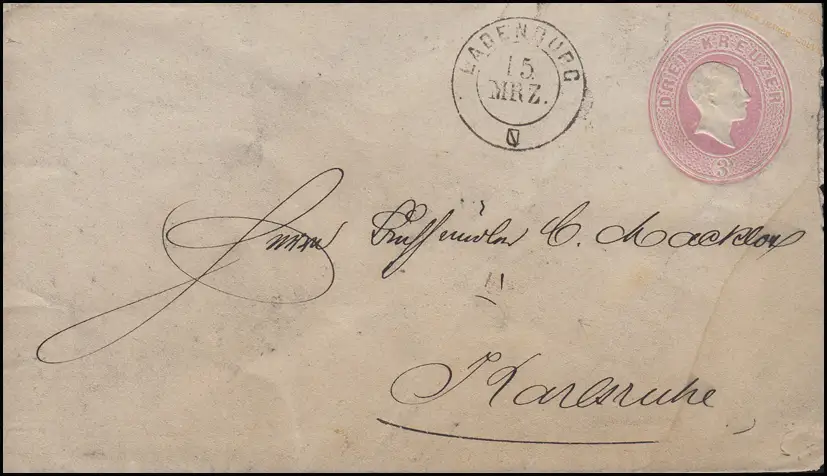 LADENBURG
15
MRZ.
DREI KREUZER
3
Herrn Buchhändler C. Macklot
Karlsruhe